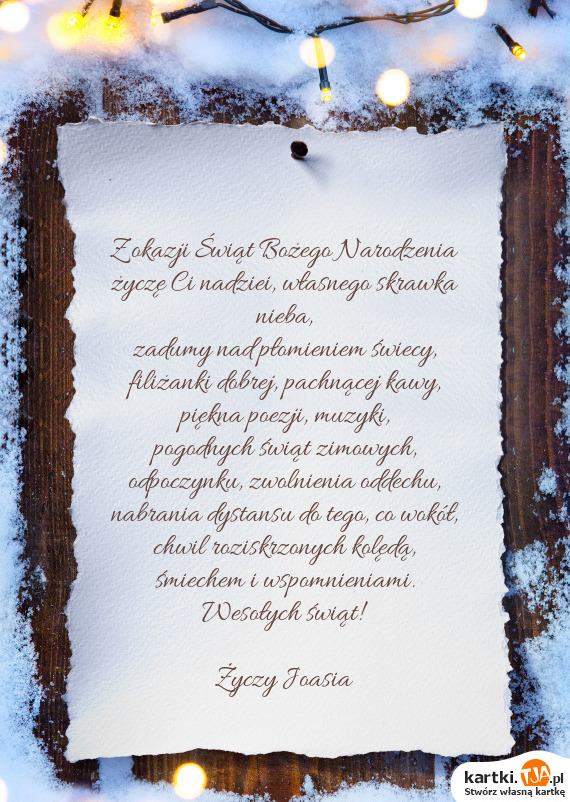 Z okazji Świąt Bożego Narodzenia
życzę Ci nadziei, własnego skrawka
nieba,
zadumy nad płomieniem świecy,
filiżanki dobrej, pachnącej kawy,
piękna poezji, muzyki,
pogodnych świąt zimowych,
odpoczynku, zwolnienia oddechu,
nabrania dystansu do tego, co wokół,
chwil roziskrzonych kolędą,
śmiechem i wspomnieniami.
Wesołych świąt!
Życzy Joasia
kartki.TJA.pl
Stwórz własną kartkę